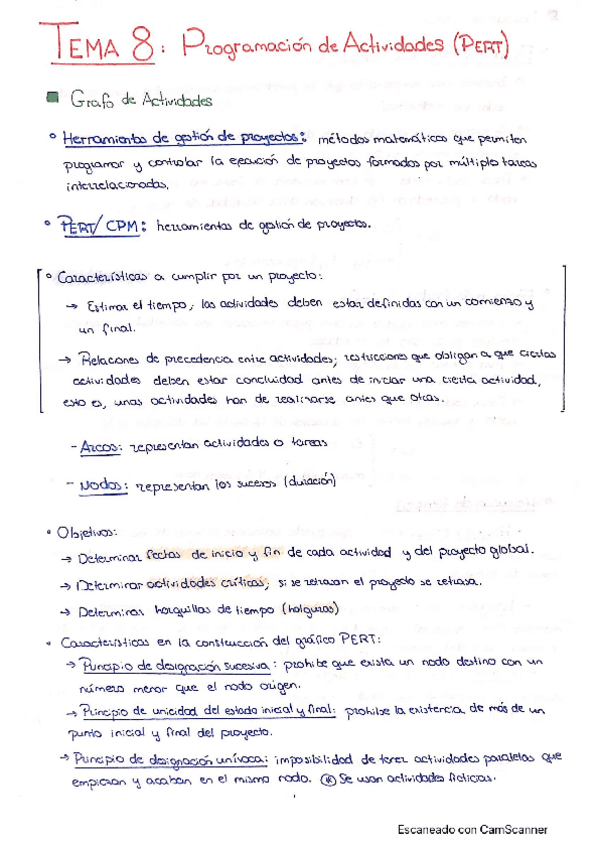 TEMA 8: Programación de Actividades (PERT)
Grafo de Actividades
° Herramientas de gestión de proyectos: métodos matemáticos que permiten
programar y controlar la ejecución de proyectos formados por múltiple tareas
interrelacionadas.
° PERT/CPM: herramientas de gestión de proyectos.
° Características a cumplir por un proyecto:
→ Estimar el tiempo, las actividades deben estar definidas con un comienzo y
un final.
→ Relaciones de precedencia entre actividades; restricciones que obligan a que ciertas
actividades deben estar concluidad antes de iniciar una cierta actividad,
esto es, unas actividades han de realizarse antes que otras.
- Arcos: representan actividades o tareas
- Nodos: representan los sucesos (duración)
• Objetivos:
→ Determinar fechas de inicio y fin de cada actividad y del proyecto global.
→ Determinar actividades críticas; si se retrasan el proyecto se retrasa.
→ Determinar horquillas de tiempo (holguras)
• Características en la construcción del gráfico PERT:
→ Principio de designación sucesiva: prohibe que exista un nodo destino con un
número menor que el nodo origen.
→ Principio de unicidad del estado inicial y final: prohibe la existencia de más de un
punto inicial y final del proyecto.
→ Principio de designación unívoca: imposibilidad de tener actividades paralelas que
empiezan y acaban en el mismo nodo. (*) Se usan actividades ficticias.
Escaneado con CamScanner